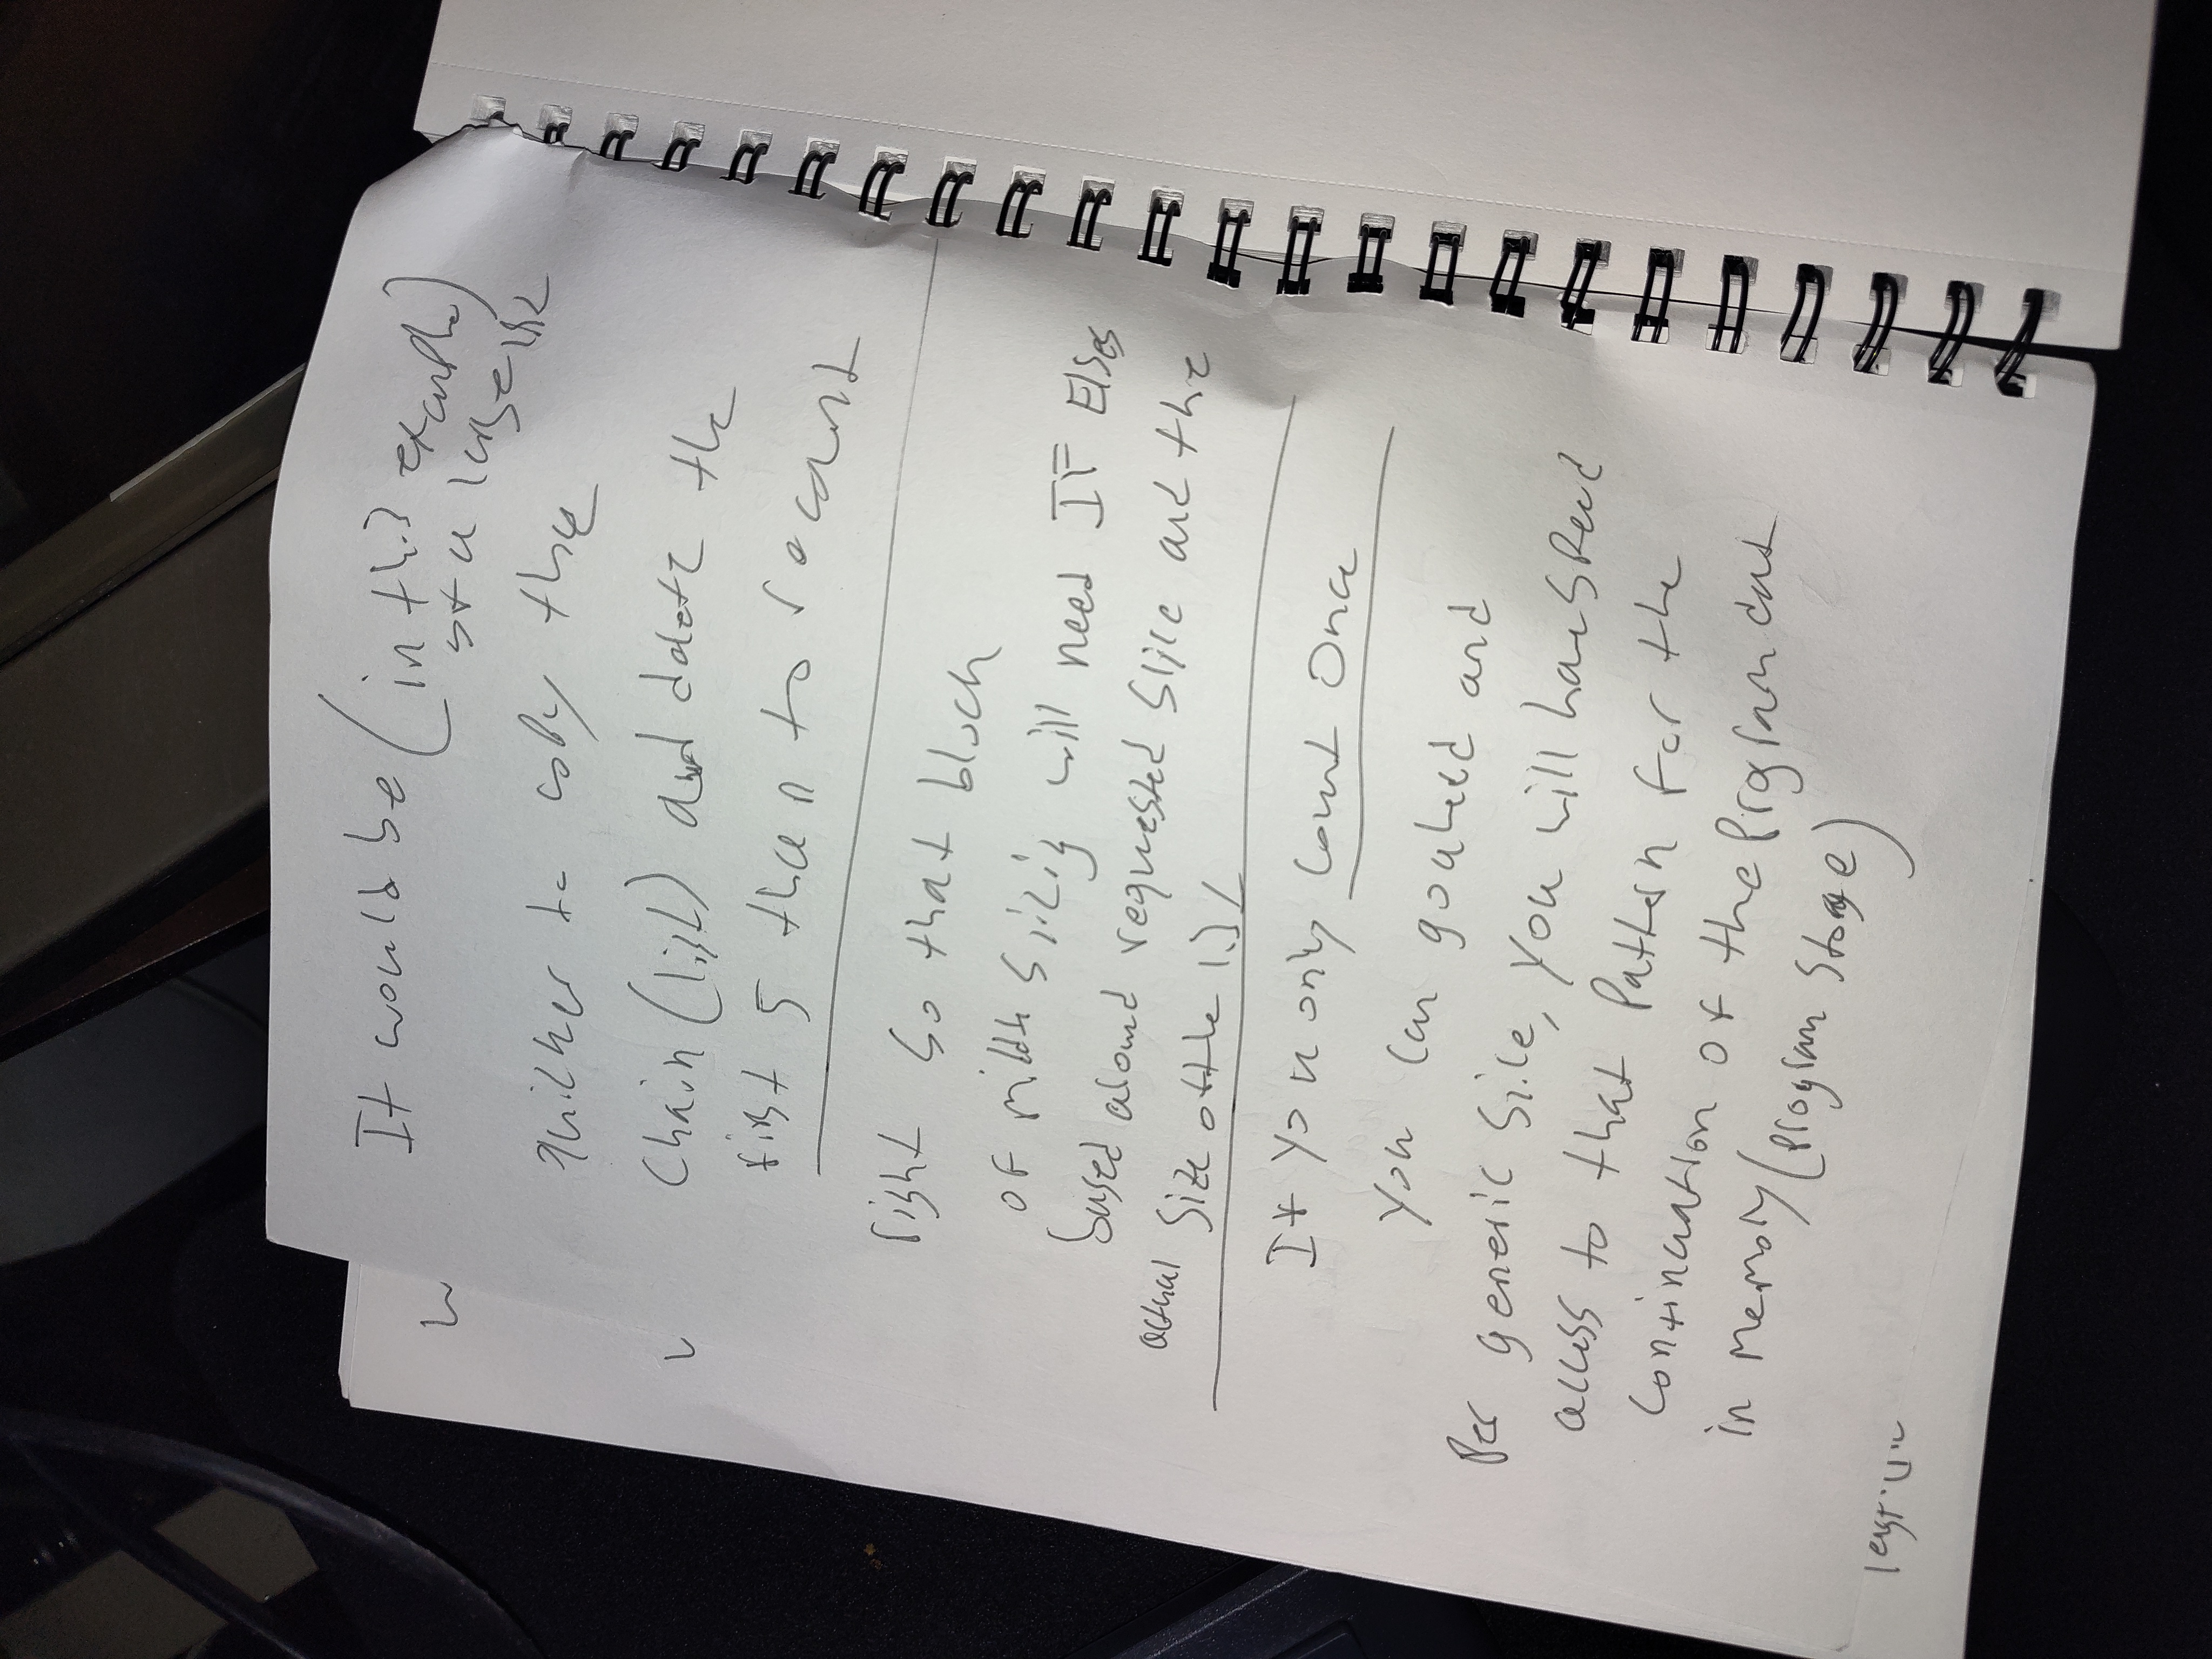 It would be (in this example)
at a large size
quicker to copy the
Chain (list) and delete the
first 5 then to recount
right so that block
of middle sizing will need IF Elses
based around requested slice and the
actual size of the list
If you only count Once
you can goahead and
Per generic slice, you will have speed
access to that Pattern for the
continuation of the Program
in memory (program storage)